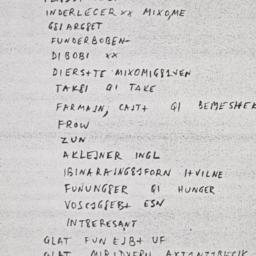 INDERLECER XX MIXOME
GSIARGSET
FUNDERBOBEN
DIBOBI XX
DIERSTTE MIXOMIGSIVEN
TAKSI QI TAKE
FARMAIN, CAIT+ QI BEMESHER
FROW
ZUN
AKLEJNER INGL
IBINARAINGSIFORN I+VILNE
FUNUNGSER QI HUNGER
VOSCIGSEB+ ESN
INTERESANT
GLAT FUN EJB+ UF
GLAT